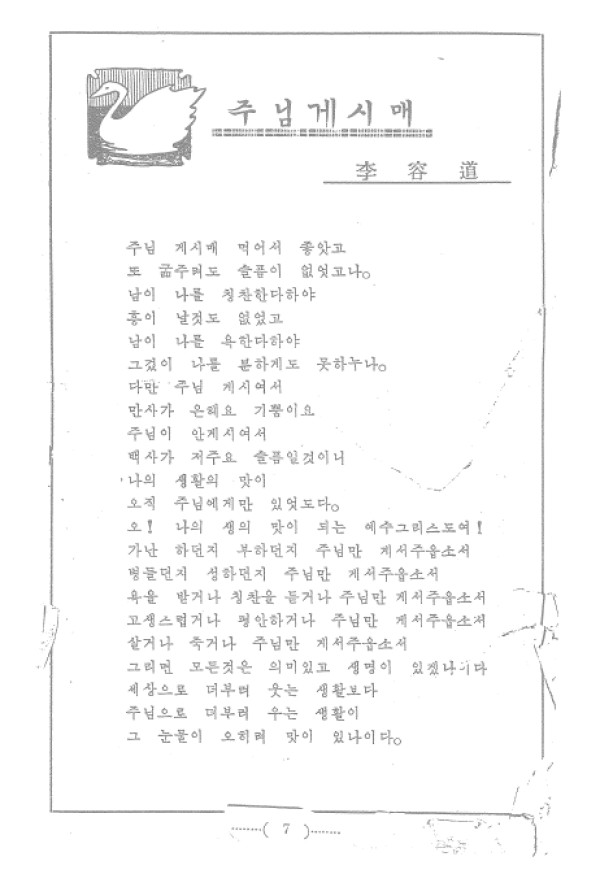 주님게시매
李容道
주님 게시매 먹어서 좋앗고
또 굶주려도 슬픔이 없엇고나。
남이 나를 칭찬한다하야
흥이 날것도 없었고
남이 나를 욕한다하야
그것이 나를 분하게도 못하누나。
다만 주님 게시여서
만사가 은혜요 기쁨이요
주님이 안게시여서
백사가 저주요 슬픔일것이니
나의 생활의 맛이
오직 주님에게만 있엇도다。
오! 나의 생의 맛이 되는 예수그리스도여!
가난 하던지 부하던지 주님만 게서주읍소서
병들던지 성하던지 주님만 게서주읍소서
욕을 받거나 칭찬을 듣거나 주님만 게서주읍소서
고생스럽거나 평안하거나 주님만 게서주읍소서
살거나 죽거나 주님만 게서주읍소서
그리면 모든것은 의미있고 생명이 있겠나이다
세상으로 더부러 웃는 생활보다
주님으로 더부러 우는 생활이
그 눈물이 오히려 맛이 있나이다。
( 7 )